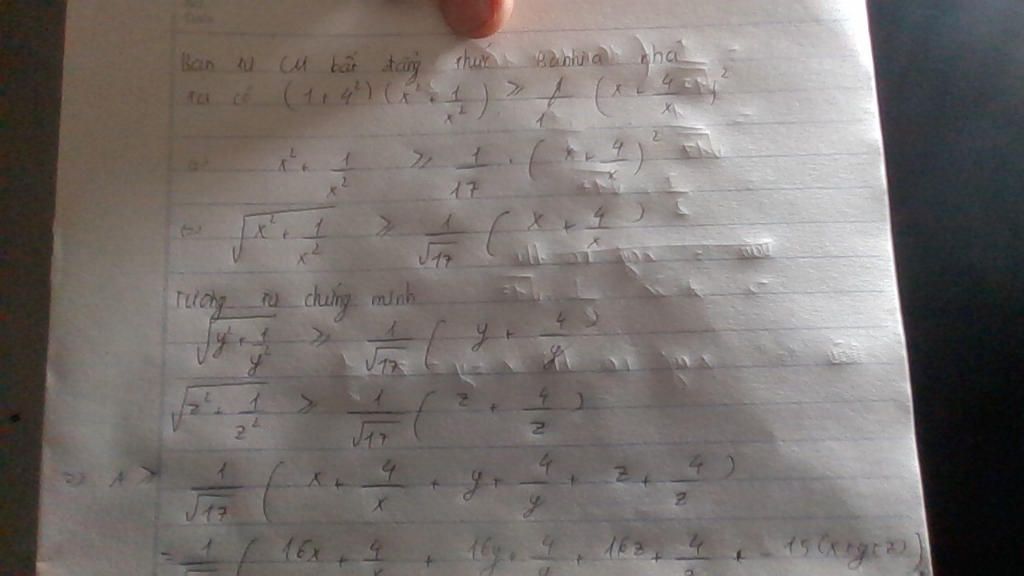 Bạn tự CM bất đẳng thức Bunhia nhá
ta có (1+4²)(x²+1/x²) ≥ (x+4/x)²
<=> x²+1/x² ≥ 1/17 . (x+4/x)²
<=> √(x²+1/x²) ≥ 1/√17 (x+4/x)
Tương tự chứng minh
√(y²+1/y²) ≥ 1/√17 (y+4/y)
√(z²+1/z²) ≥ 1/√17 (z+4/z)
=> A ≥ 1/√17 (x+4/x+y+4/y+z+4/z)
= 1/√17 (16x+4/x+16y+4/y+16z+4/z+-15(x+y+z))